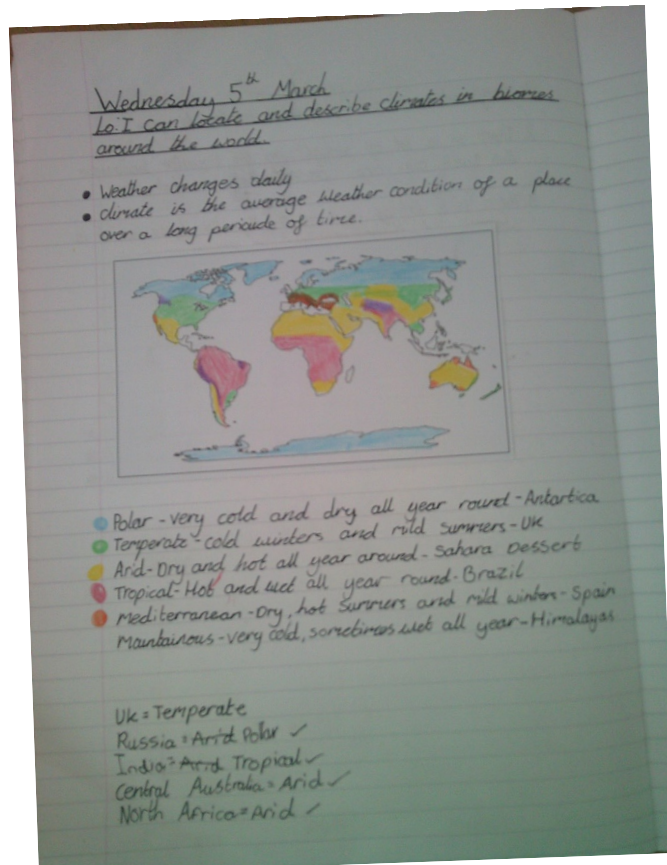 Wednesday 5th March
Lo: I can locate and describe climates in biomes
around the world.
• Weather changes daily
• climate is the average weather condition of a place
over a long pericude of time.
Polar - very cold and dry all year round - Antartica
Temperate - cold winters and mild summers - UK
Arid - Dry and hot all year around - Sahara Dessert
Tropical - Hot and wet all year round - Brazil
Mediterranean - Dry, hot summers and mild winters - Spain
Mauntainous - very cold, sometimes wet all year - Himalayas
UK = Temperate
Russia = Arid Polar ✓
India = Arid Tropical ✓
Central Australia = Arid ✓
North Africa = Arid ✓